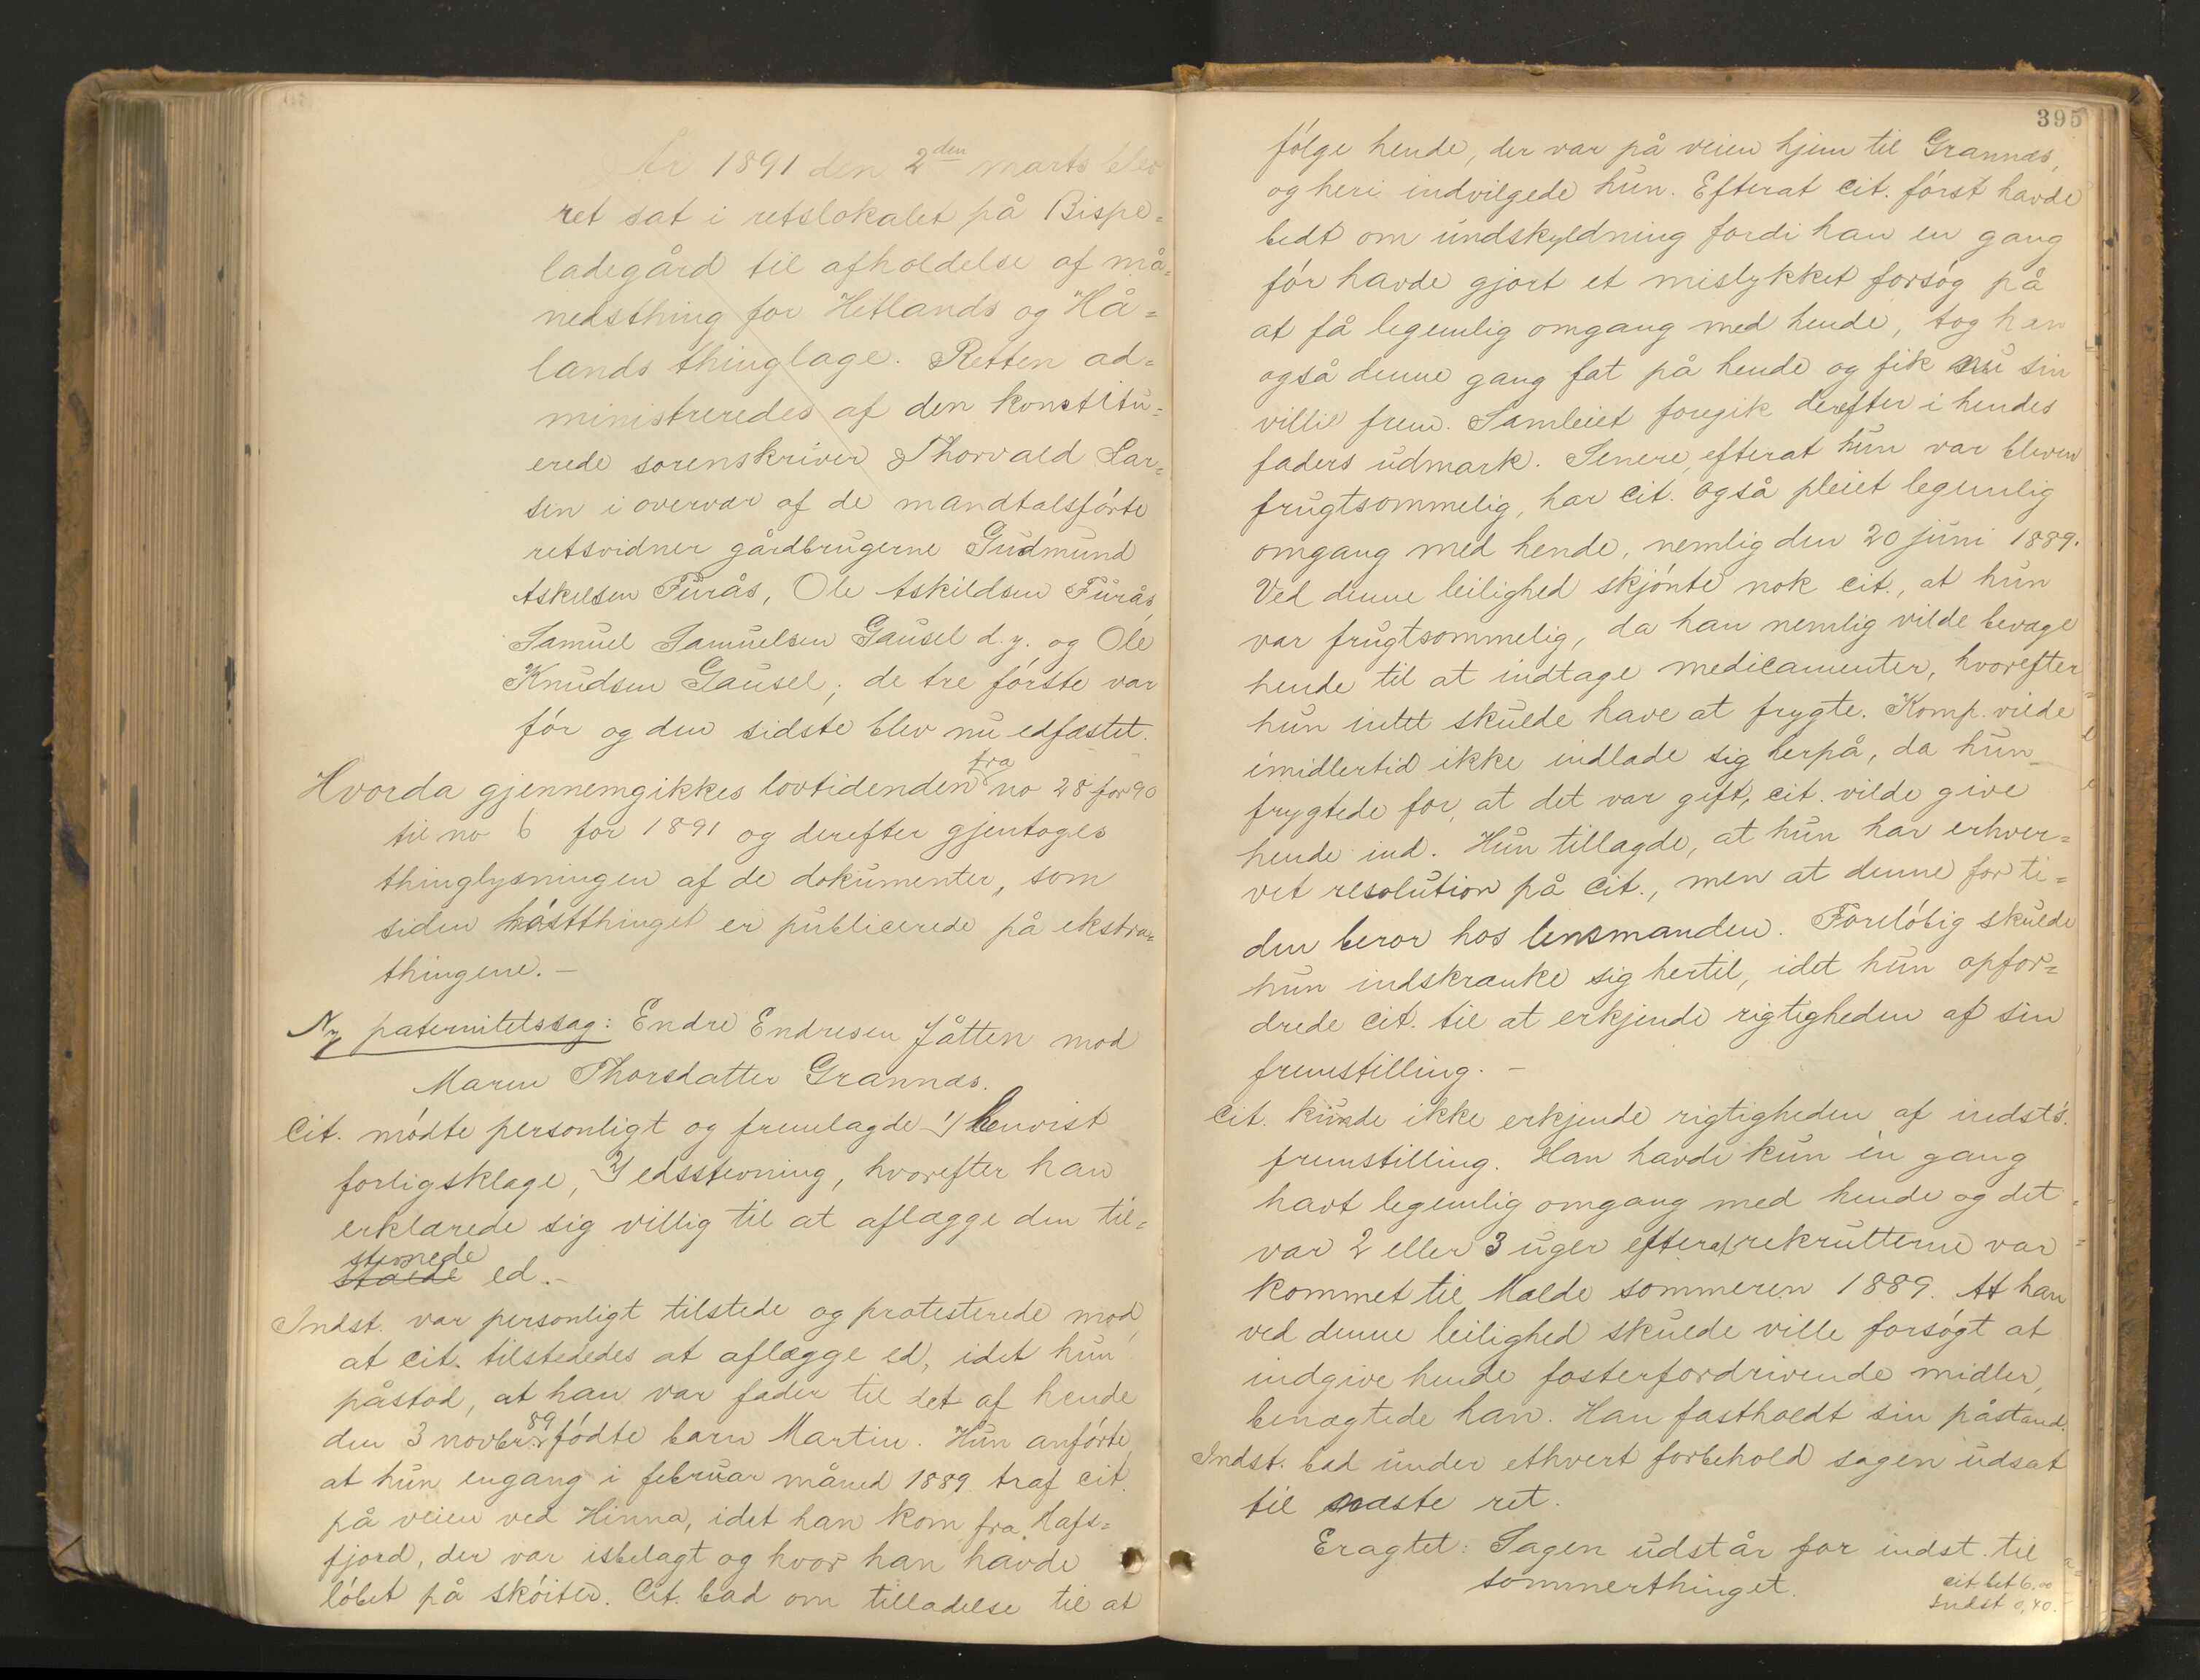 År 1891 den 2den marts blev
ret sat i retslokalet på Bispe=
ladegård til afholdelse af må=
nedsthing for Hetlands og Hå=
lands thinglage. Retten ad=
ministreredes af den konstitu=
erede sorenskriver Thorvald Lar=
sen i overvær af de mandtalsførte
retsvidner gårdbrugerne Gudmund
Askilsen Furås, Ole Askildsen Furås,
Samuel Samuelsen Gausel d.y. og Ole
Knudsen Gausel; de tre første var
før og den sidste blev nu edfæstet.
Hvorda gjennemgikkes lovtidenden fra no 28 for 90
til no 6 for 1891 og derefter gjentoges
thinglysningen af de dokumenter, som
siden høstthinget er publicerede på ekstra=
thingene. –
Ny paternitetssag: Endre Endresen Jåtten mod
Maren Thorsdatter Grannæs.
Cit. mødte personligt og fremlagde 1/ henvist
forligsklage, 2/ edsstevning, hvorefter han
erklærede sig villig til at aflægge den til=
stevnede
stærde ed. –
Indst. var personligt tilstede og protesterede mod,
at cit. tilstededes at aflægge ed, idet hun
påstod, at han var fader til det af hende
den 3 novbr. 89 fødte barn Martin. Hun anførte,
at hun engang i februar måned 1889 traf cit.
på veien ved Hinna, idet han kom fra Hafs=
fjord, der var isbelagt og hvor han havde
løbet på skøiter. Cit. bad om tilladelse til at
395
følge hende, der var på veien hjem til Grannæs,
og heri indvilgede hun. Efterat cit. først havde
bedt om undskyldning fordi han en gang
før havde gjort et mislykket forsøg på
at få legemlig omgang med hende, tog han
også denne gang fat på hende og fik nu sin
villie frem. Samleiet foregik derefter i hendes
faders udmark. Senere, efterat hun var bleven
frugtsommelig, har cit. også pleiet legemlig
omgang med hende, nemlig den 20 juni 1889.
Ved denne leilighed skjønte nok cit., at hun
var frugtsommelig, da han nemlig vilde bevæge
hende til at indtage medicamenter, hvorefter
hun intet skulde have at frygte. Komp. vilde
imidlertid ikke indlade sig herpå, da hun
frygtede for, at det var gift, cit. vilde give
hende ind. Hun tillagde, at hun har erhver=
vet resolution på cit., men at denne for ti=
den beror hos lensmanden. Foreløbig skulde
hun indskrænke sig hertil, idet hun opfor=
drede cit. til at erkjende rigtigheden af sin
fremstilling. –
Cit. kunde ikke erkjende rigtigheden af indst's.
fremstilling. Han havde kun én gang
havt legemlig omgang med hende og det
var 2 eller 3 uger efterat rekrutterne var
kommet til Malde sommeren 1889. At han
ved denne leilighed skulde ville forsøgt at
indgive hende fosterfordrivende midler,
benægtede han. Han fastholdt sin påstand.
Indst. bad under ethvert forbehold sagen udsat
til næste ret.
Eragtet: Sagen udstår for indst. til
sommerthinget.
cit. bet 6,00
Indst 0,40.